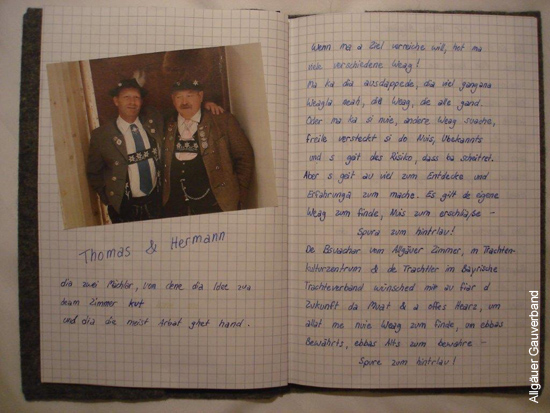 Thomas & Hermann
dia zwei Mächlar, von dene dia Idee zua
deam Zimmer kut
und dia die meist Arbat ghet hand.
Wenn ma a Ziel verreiche will, het ma
viele verschiedene Weag!
Ma ka dia ausdappede, dia viel gangana
Weagla neah, die Weag, die alle gand.
Oder ma ka si nuie, andere Weag suache,
freile versteckt si do Nuis, Unbekannts
und s geit des Risiko, dass ba scheitret.
Aber s geit au viel zum Entdecke und
Erfahrunga zum mache. Es gilt de eigene
Weag zum finde, Nuis zum erschließe -
Spura zum hintrlau!
De Bsuachar vom Allgäuer Zimmer, im Trachten-
kulturzentrum & de Trachtler im Bayrische
Trachteverband wünsched mir au fiar d
Zukunft da Muat & a offes Hearz, um
allat me nuie Weag zum finde, um ebbas
Bewährts, ebbas Alts zum bewahre -
Spura zum hintrlau!
Allgäuer Gauverband